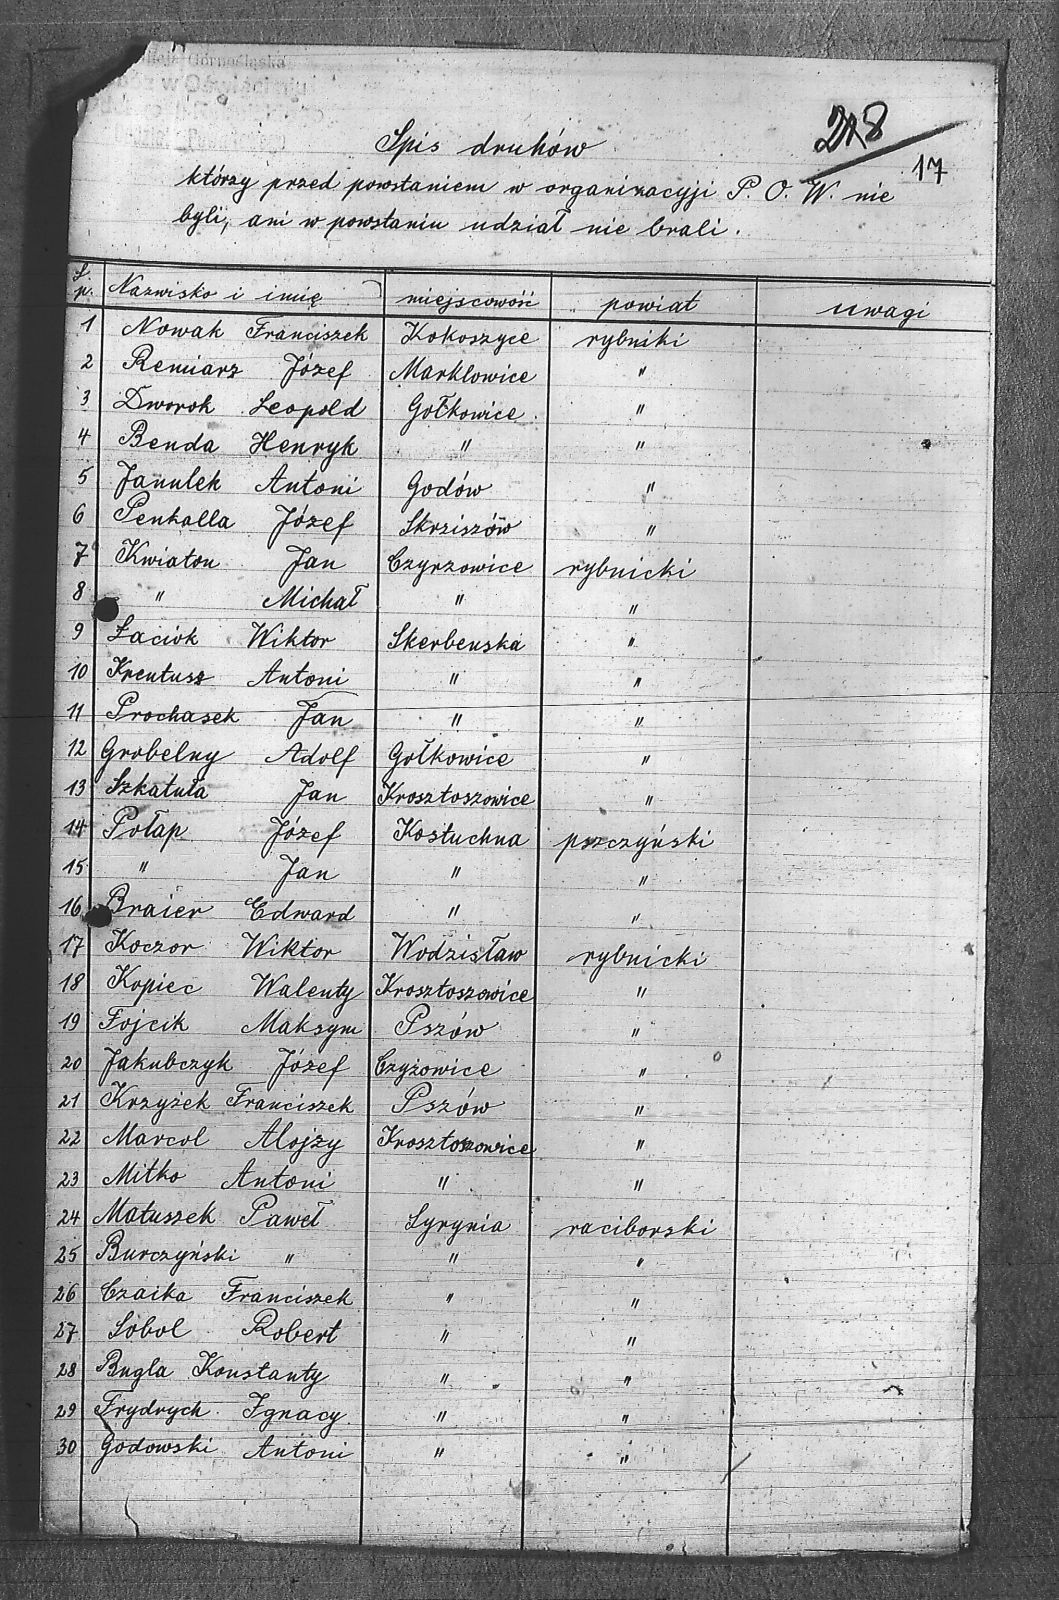 Górnośląska
w Oświęcimiu
218
17
Spis druhów
którzy przed powstaniem w organizacyji P. O. W. nie
byli, ani w powstaniu udział nie brali.
L. p. Nazwisko i imię miejscowość powiat uwagi
1 Nowak Franciszek Kokoszyce rybniki
2 Remiarz Józef Marklowice "
3 Dworok Leopold Gołkowice "
4 Benda Henryk " "
5 Janulek Antoni Godów "
6 Penkalla Józef Skrziszów "
7 Kwiaton Jan Czyrzowice rybnicki
8 " Michał " "
9 Łaciok Wiktor Skerbenska "
10 Kreutusz Antoni " "
11 Prochasek Jan " "
12 Grobelny Adolf Gołkowice "
13 Szkatuła Jan Krosztoszowice "
14 Połap Józef Kostuchna pszczyński
15 " Jan " "
16 Braier Edward " "
17 Koczor Wiktor Wodzisław rybnicki
18 Kopiec Walenty Krosztoszowice "
19 Fojcik Maksym Pszów "
20 Jakubczyk Józef Czyżowice "
21 Krzyżek Franciszek Pszów "
22 Marcol Alojzy Krosztoszowice "
23 Mitko Antoni " "
24 Matuszek Paweł Syrynia raciborski
25 Burczyński " " "
26 Czaika Franciszek " "
27 Sobol Robert " "
28 Bugla Konstanty " "
29 Frydrych Ignacy " "
30 Godowski Antoni " "